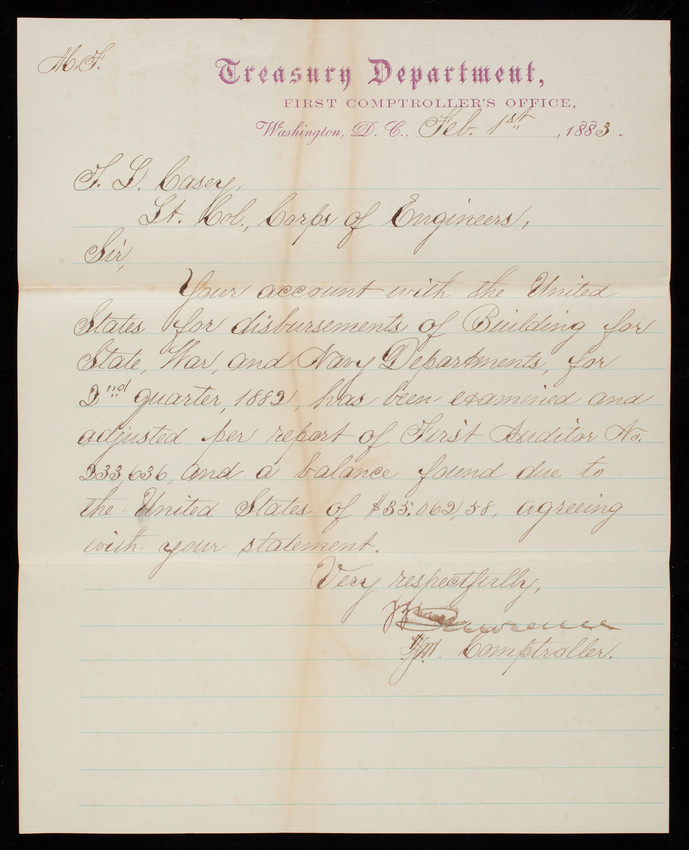 M.F.
Treasury Department,
FIRST COMPTROLLER'S OFFICE,
Washington, D. C., Feb. 1st, 1883.
T. L. Casey,
Lt. Col., Corps of Engineers,
Sir,
Your account with the United
States for disbursements of Building for
State, War, and Navy Departments, for
2nd quarter, 1882, has been examined and
adjusted per report of First Auditor No.
233,636, and a balance found due to
the United States of $35.062,58, agreeing
with your statement.
Very respectfully,
Lawrence
Comptroller.